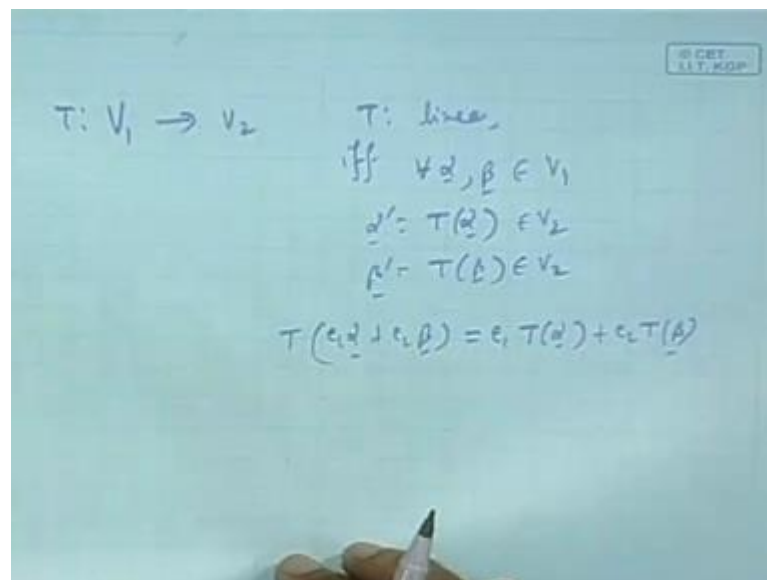 © CET
I.I.T. KGP
T: V₁ → V₂ T: linear,
iff ∀ α, β ∈ V₁
α' = T(α) ∈ V₂
β' = T(β) ∈ V₂
T(c₁α + c₂β) = c₁ T(α) + c₂ T(β)